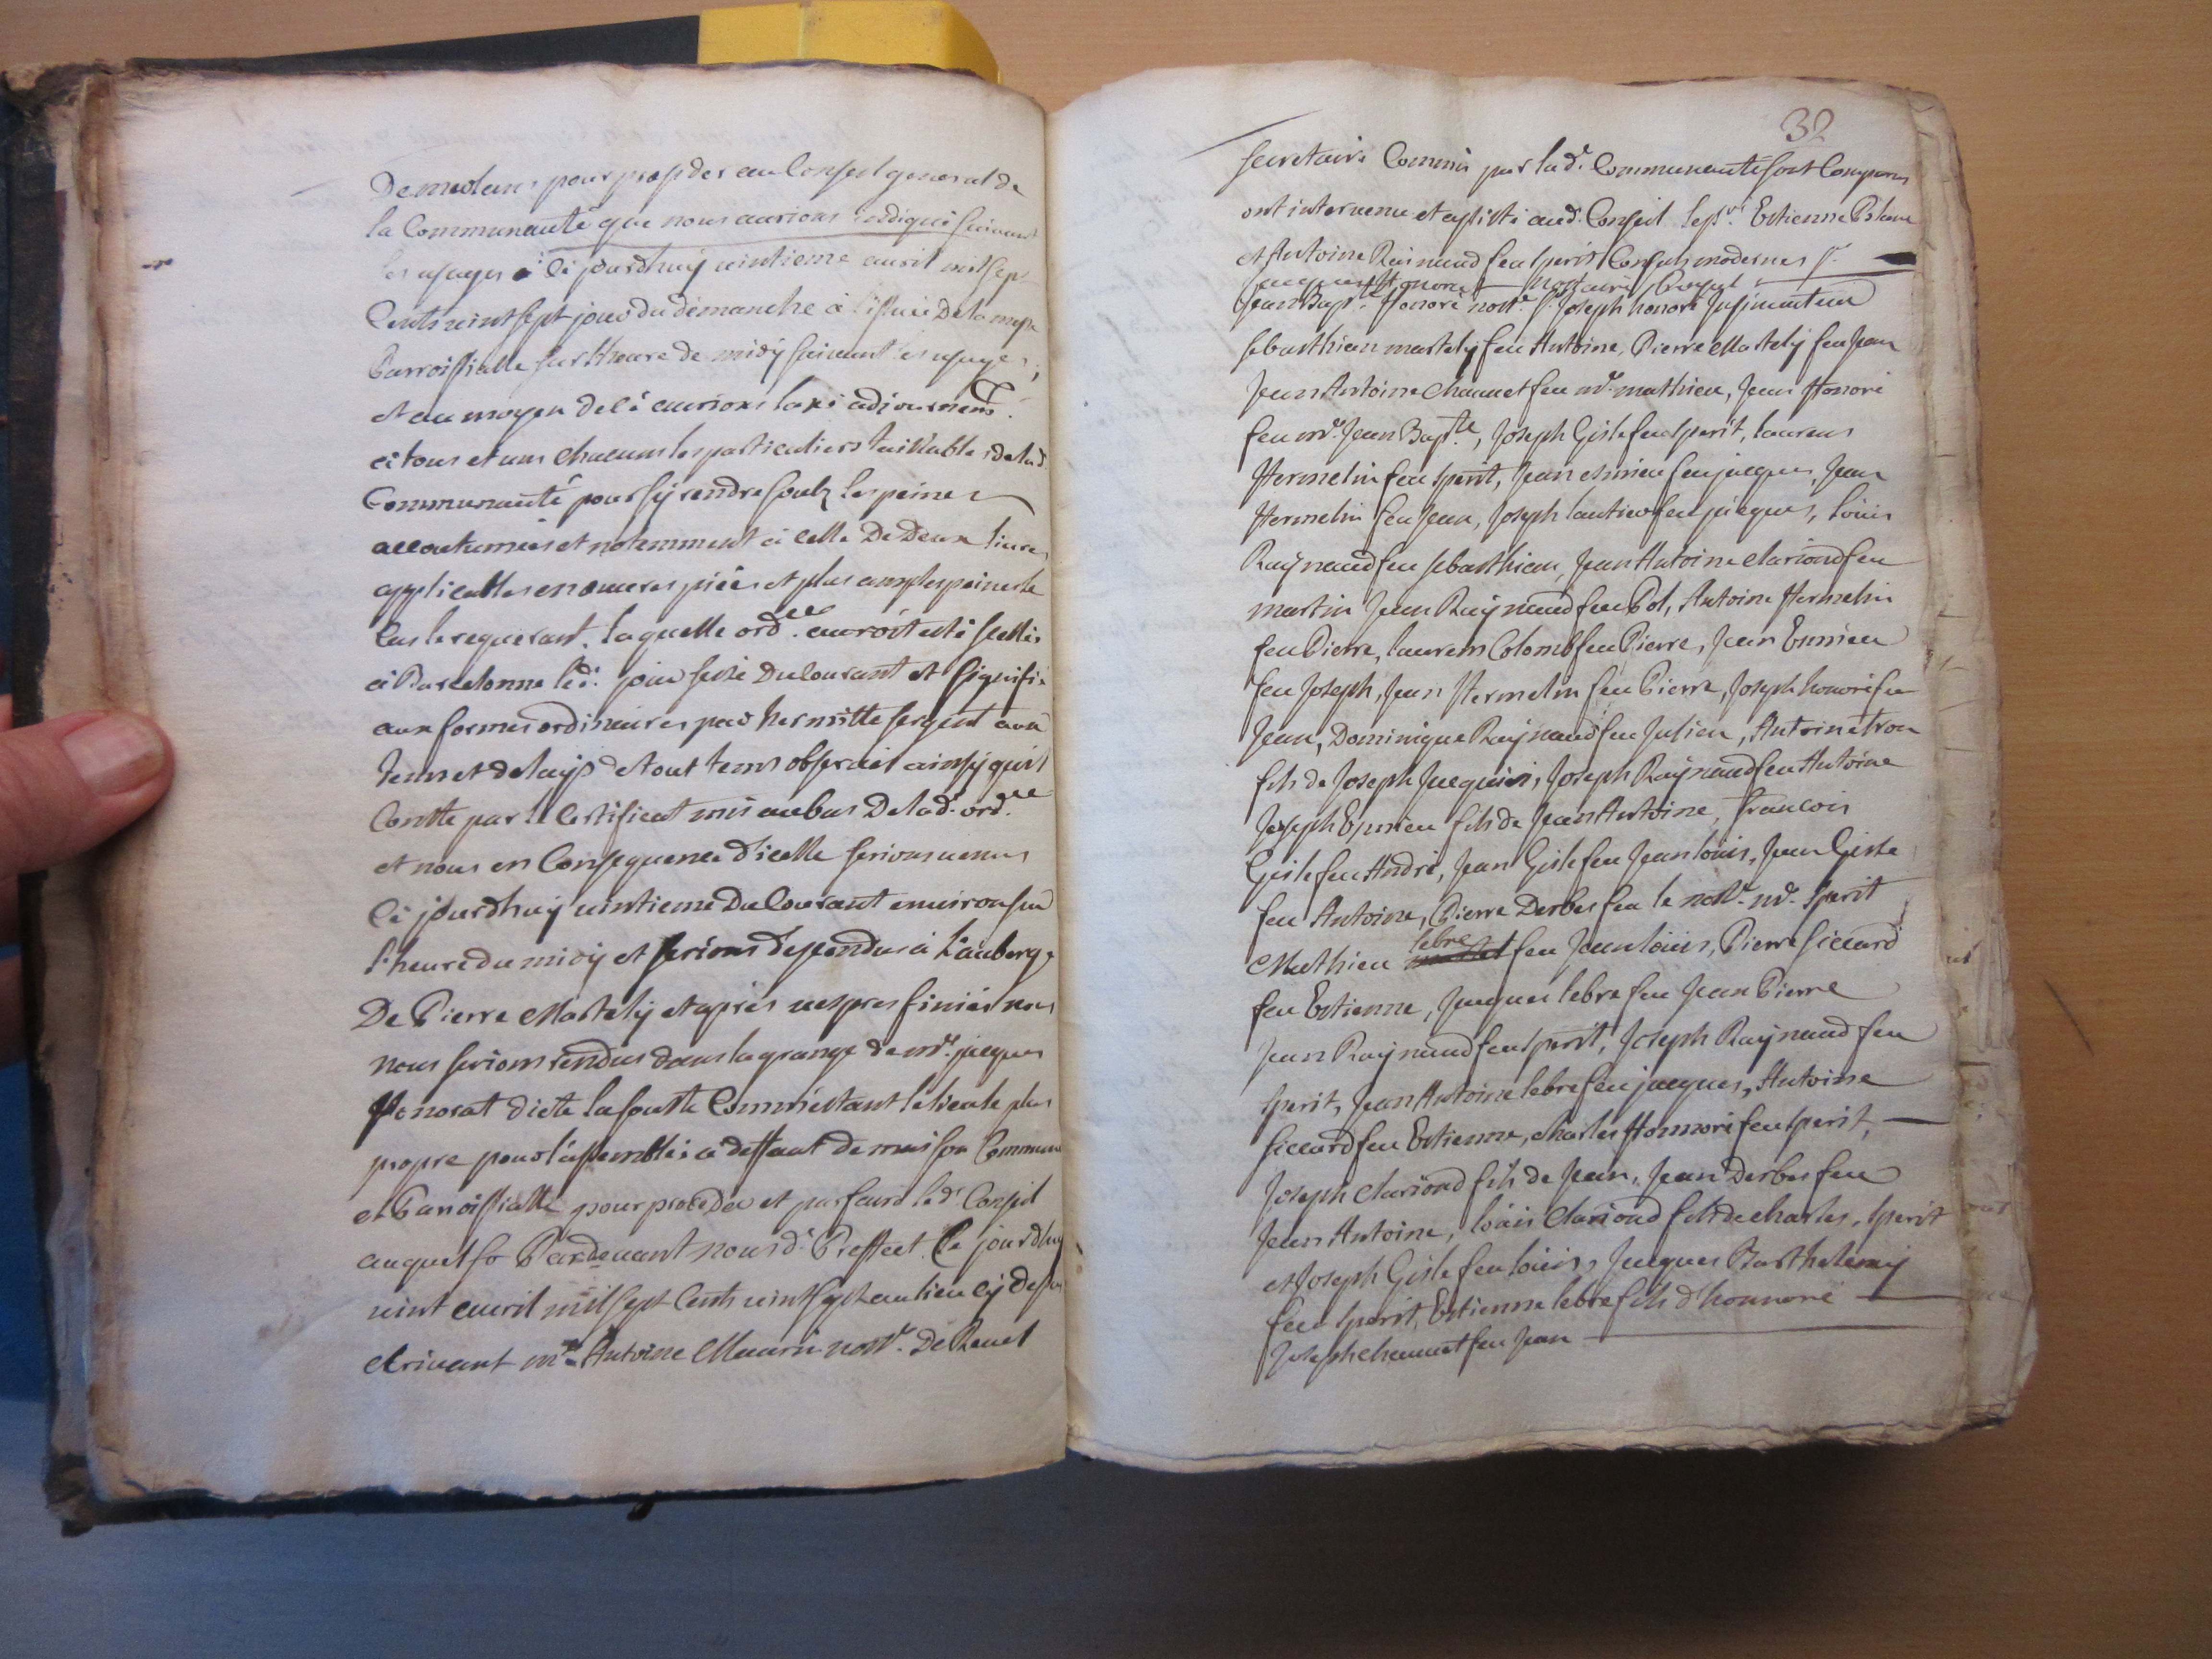 De meolans pour proceder au Conseil general de
la Communauté que nous aurions indiqué suivant
les usages à ce jourdhuy vintieme avril mil sept
Cents vint sept jour du dimanche à l'issue de la messe
Parroissialle sur lheure de midy suivant les usages,
et au moyen de ce aurions laxé adjournemt.
à tous et uns chacuns les particuliers taillables de lad.
Communauté pour sy rendre soubz les peines
accoutumées et notemment à celle De Deux livres
applicables en œuvres piées et plus amples peines le
Cas le requerant. laquelle ordce. auroit esté scellée
à Barcelonne led. jour seize Du Courant et signifié
aux formes ordinaires par hermitte sergent avec
tems et delays de tout tems observés ainsy quil
Conste par le Certificat mis au bas De lad. ordce
et nous en Consequence d'icelle serions venus
Ce jourdhuy vintieme Du Courant environ sur
l'heure du midy et serions dependus à l'auberge
De Pierre Martely et apres vespres finies nous
nous serions rendus dans la grange de me. jacques
Honorat dicte la Comme estant le lieu le plus
propre pour l'assemblée a deffaut de maison Commune
et Parroissialle pour proceder et parfaire led. Conseil
auquel Pardevant nous d. Preffect Ce jourdhuy
vint avril mil sept Cents vint sept au lieu cy dessus
Ecrivant me. Antoine Maurin nore. De Revel
32
secretaire Commis par lad. Communauté sont Comparus
ont intervenu et assisté aud. Conseil les srs. Estienne
et Antoine Raynaud feu Sperit Consuls modernes sr.
Jean Bapte. Honoré nore. sr. Joseph honoré
sebasthien martely feu Antoine, Pierre Martely feu Jean
Jean Antoine Chauvet feu me. mathieu, Jean Honoré
feu me. Jean Bapte., Joseph Gisle feu Sperit, laurens
Hermelin feu Sperit, Jean esmieu feu jacques, Jean
Hermelin feu Jean, Joseph feu jacques, louis
Raynaud feu sebasthien, Jean Antoine Clariond feu
martin Jean Raynaud feu Pol, Antoine Hermelin
feu Pierre, laurens Colomb feu Pierre, Jean Esmieu
feu Joseph, Jean Hermelin feu Pierre, Joseph honoré feu
Jean, Dominique Raynaud feu Julien, Antoine tron
fils de Joseph Jacques, Joseph Raynaud feu Antoine
Joseph Esmieu fils de Jean Antoine, francois
Gisle feu André, Jean Gisle feu Jean louis, Jean Gisle
feu Antoine, Pierre Derbes feu le nore. me. Sperit
lebre
Mathieu feu Jean louis, Pierre siccard
feu Estienne, Jacques lebre feu Jean Pierre
Jean Raynaud feu Sperit, Joseph Raynaud feu
Sperit, Jean Antoine lebre feu jacques, Antoine
siccard feu Estienne, charles Honnoré feu Sperit,
Joseph Clariond fils de Jean, Jean Derbes feu
Jean Antoine, louis Clariond fils de charles, Sperit
et Joseph Gisle feu louis, Jacques Barthelemy
feu Sperit, Estienne lebre fils d'honnoré
Joseph Chauvet feu Jean